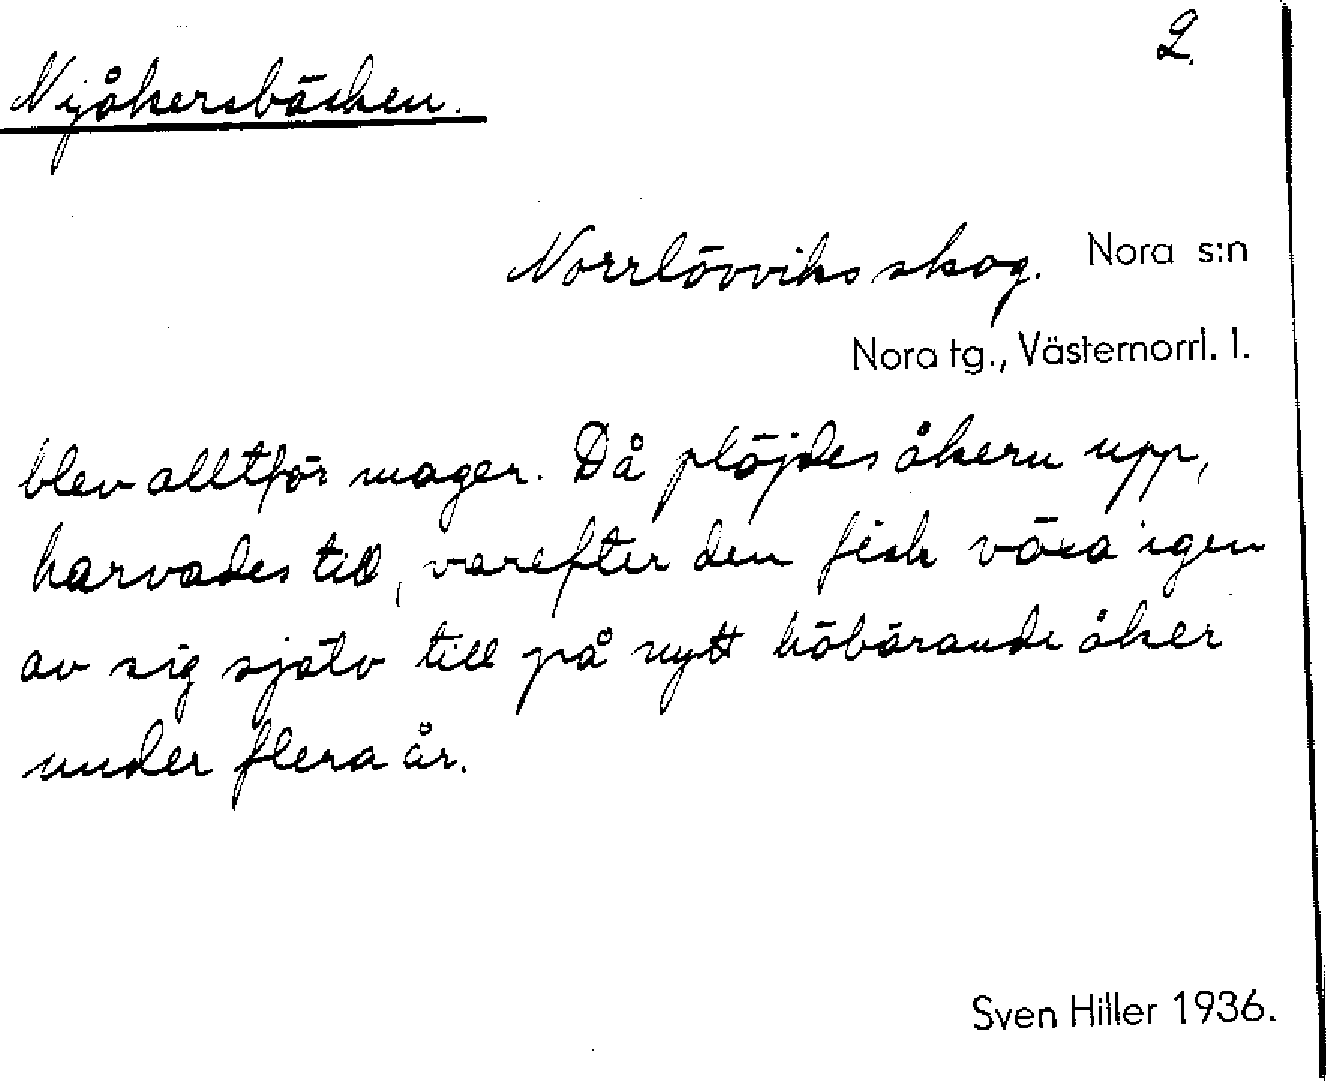 2.
Nyåkersbäcken.
Norrlövviks skog. Nora s:n
Nora tg., Västernorrl. l.
blev alltför mager. Då plöjdes åkern upp,
harvades till, varefter den fick växa igen
av sig själv till på nytt höbärande åker
under flera år.
Sven Hiller 1936.